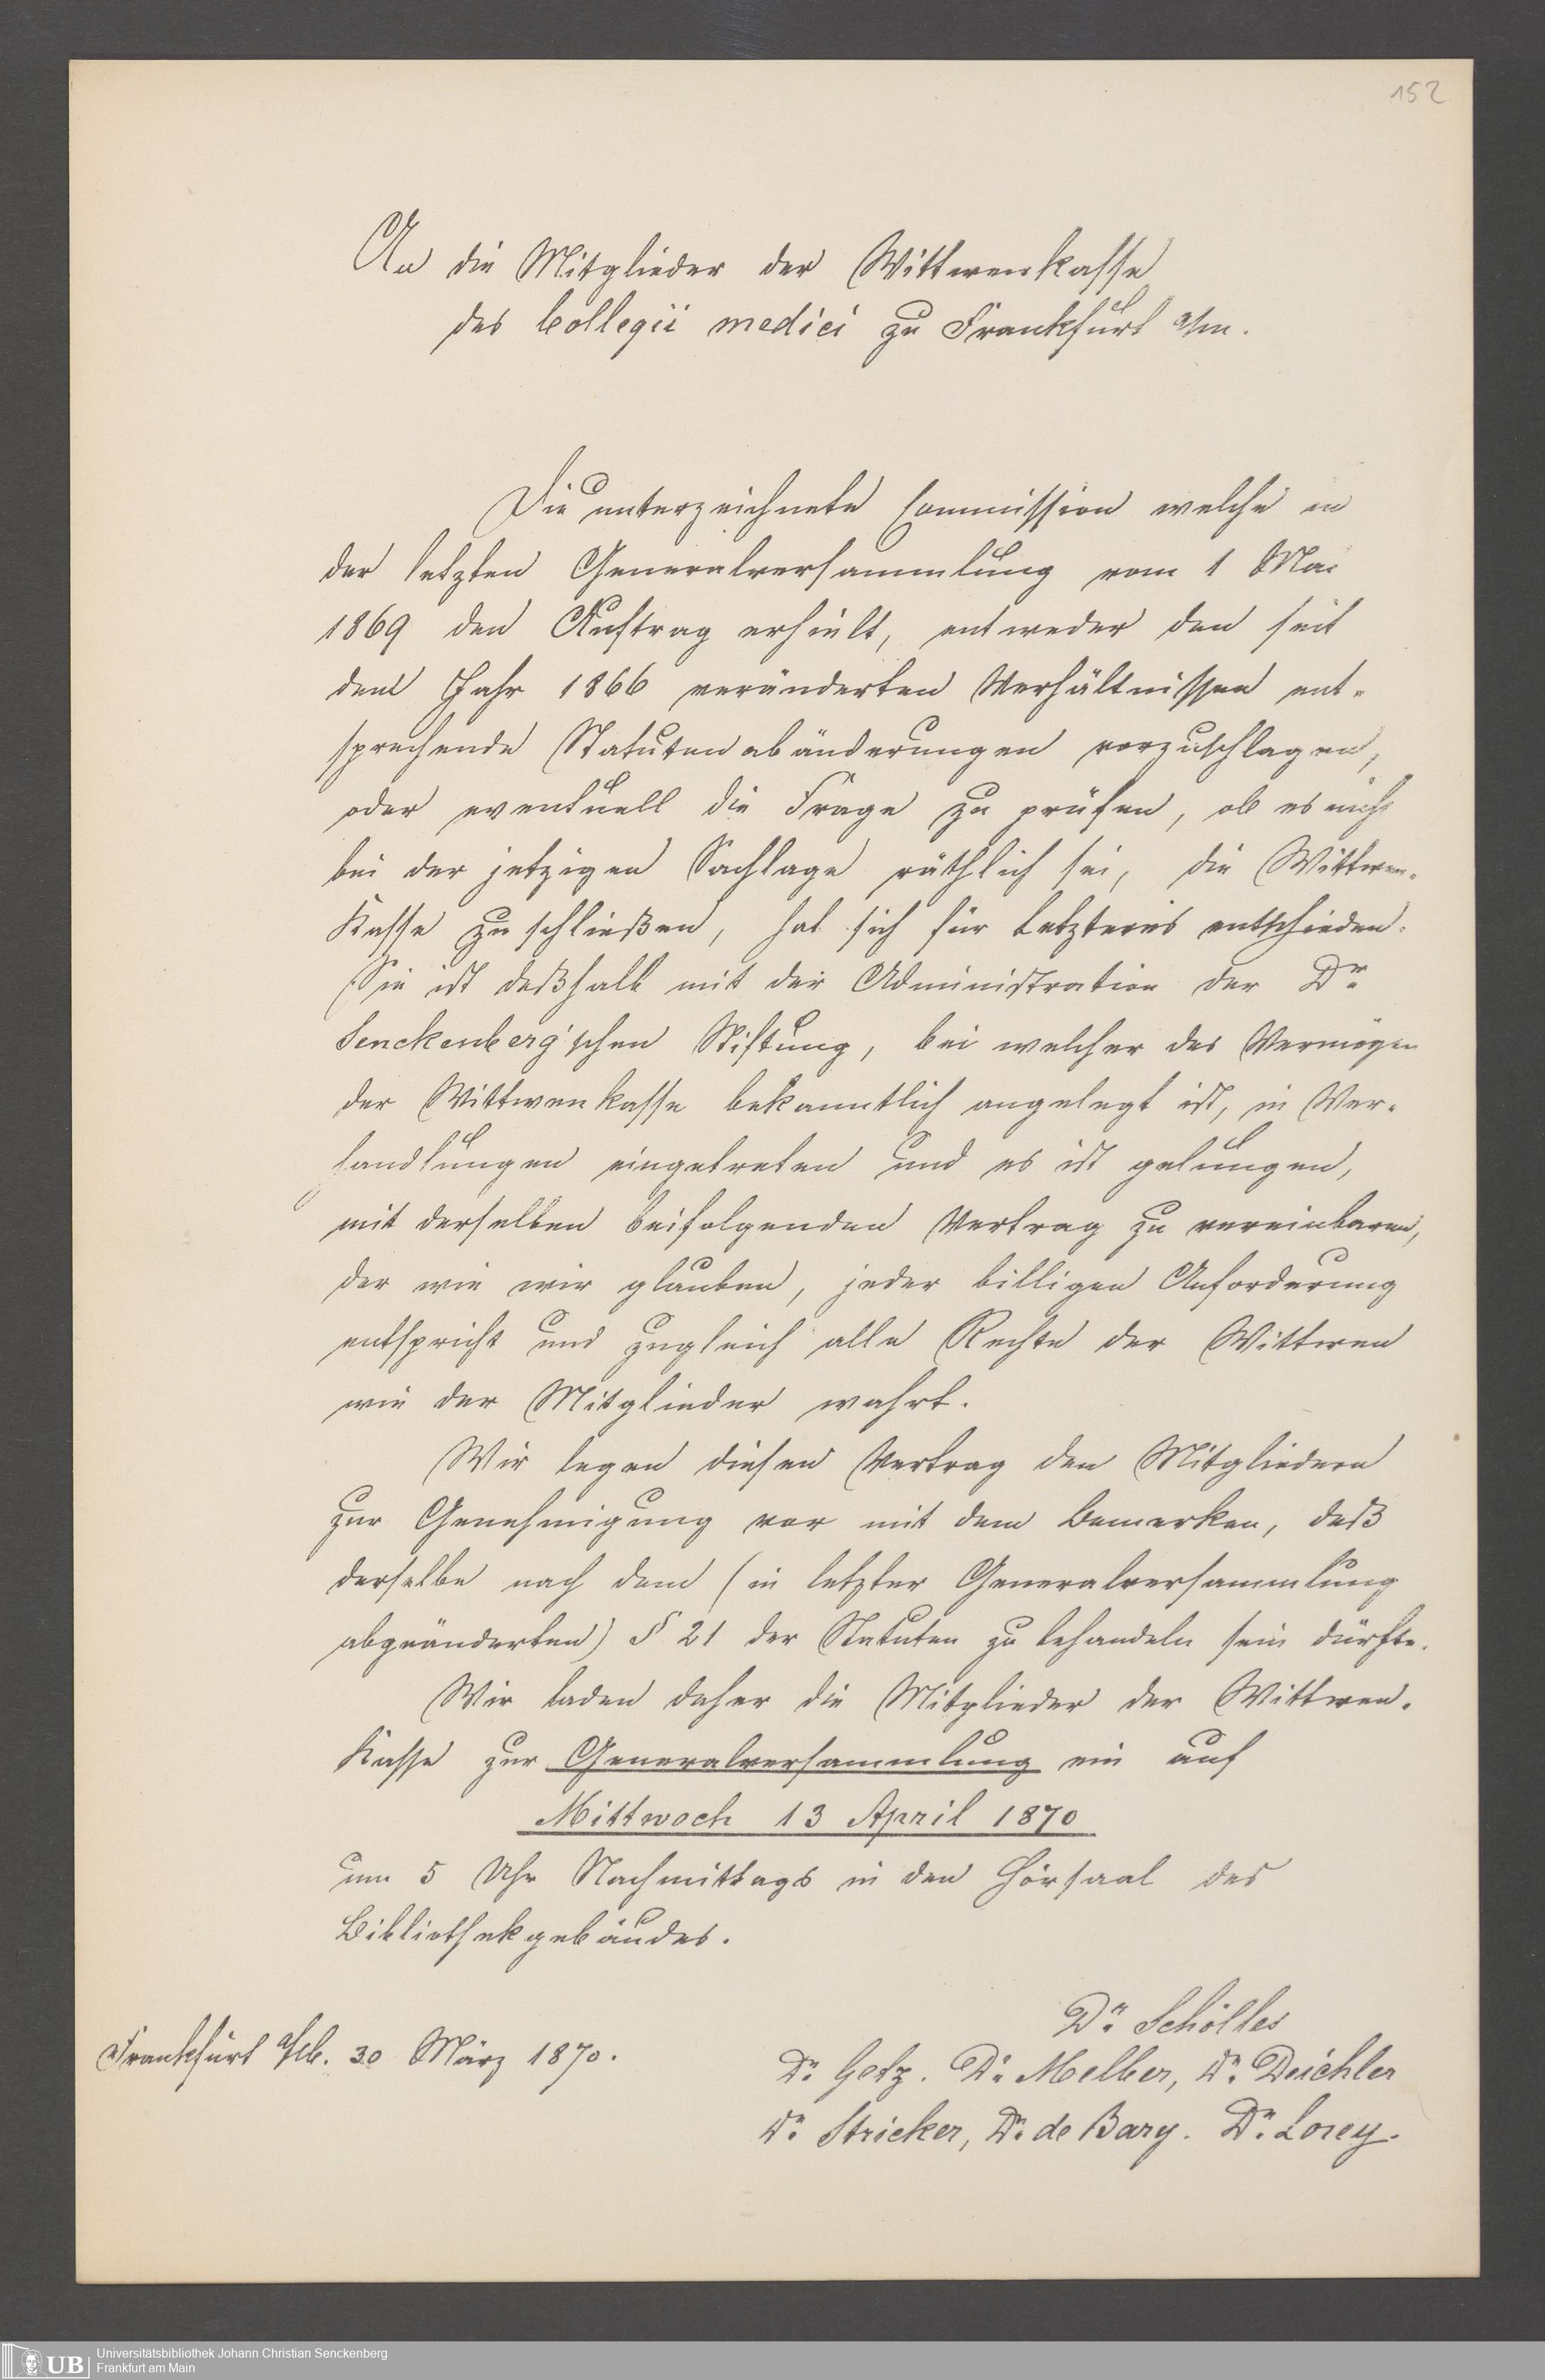 152
An die Mitglieder der Wittwenkasse
des Collegii medici zu Frankfurt a/m.
Die unterzeichnete Commission welche in
der letzten Generalversammlung vom 1 Mai
1869 den Auftrag erhielt, entweder den seit
dem Jahr 1866 veränderten Verhältnissen ent-
sprechende Statutenabänderungen vorzuschlagen,
oder eventuell die Frage zu prüfen, ob es nicht
bei der jetzigen Sachlage räthlich sei, die Wittwen-
Kasse zu schließen, hat sich für Letzteres entschieden.
Sie ist deßhalb mit der Administration der Dr
Senckenberg'schen Stiftung, bei welcher das Vermögen
der Wittwenkasse bekanntlich angelegt ist, in Ver-
handlungen eingetreten und es ist gelungen,
mit derselben beifolgenden Vertrag zu vereinbaren,
der wie wir glauben, jeder billigen Anforderung
entspricht und zugleich alle Rechte der Wittwen
wie der Mitglieder wahrt.
Wir legen diesen Vertrag den Mitgliedern
zur Genehmigung vor mit dem Bemerken, daß
derselbe nach dem (in letzter Generalversammlung
abgeänderten) § 21 der Statuten zu behandeln sein dürfte.
Wir laden daher die Mitglieder der Wittwen-
Kasse zur Generalversammlung ein auf
Mittwoch 13 April 1870
um 5 Uhr Nachmittags in den Hörsaal des
Bibliothekgebäudes.
Frankfurt a/M. 30 März 1870.
Dr Schölles
Dr Getz. Dr Melber, Dr Deichler
Dr Stricker, Dr de Bary. Dr Lorey.
UB
Universitätsbibliothek Johann Christian Senckenberg
Frankfurt am Main